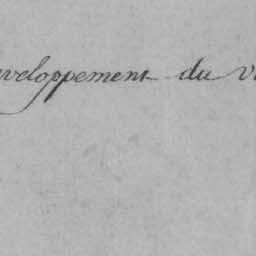 veloppement du v